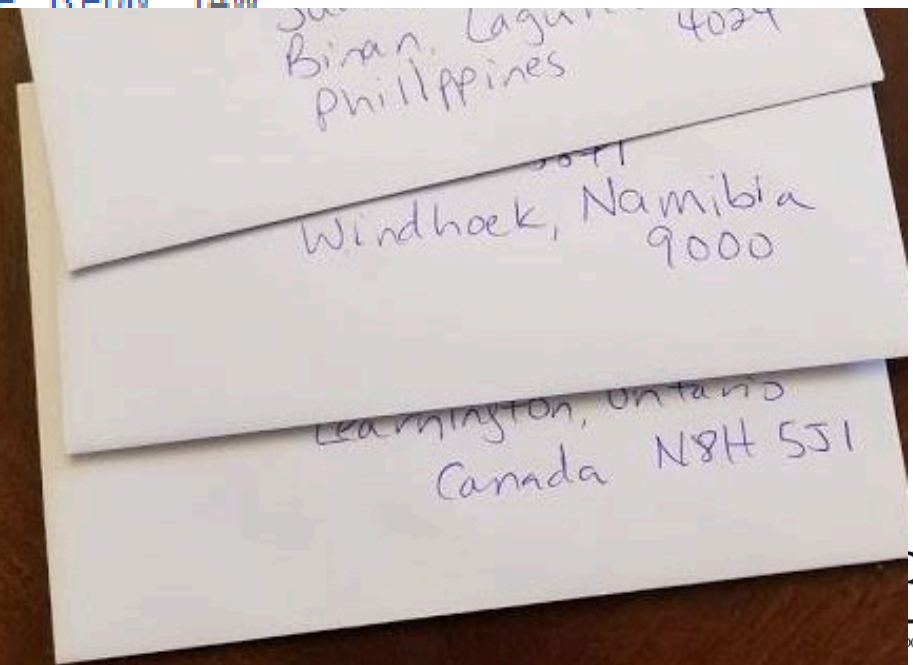 Binan, Laguna 4024
Phillppines
Windhoek, Namibia
9000
Leamington, Ontario
Canada N8H 5J1